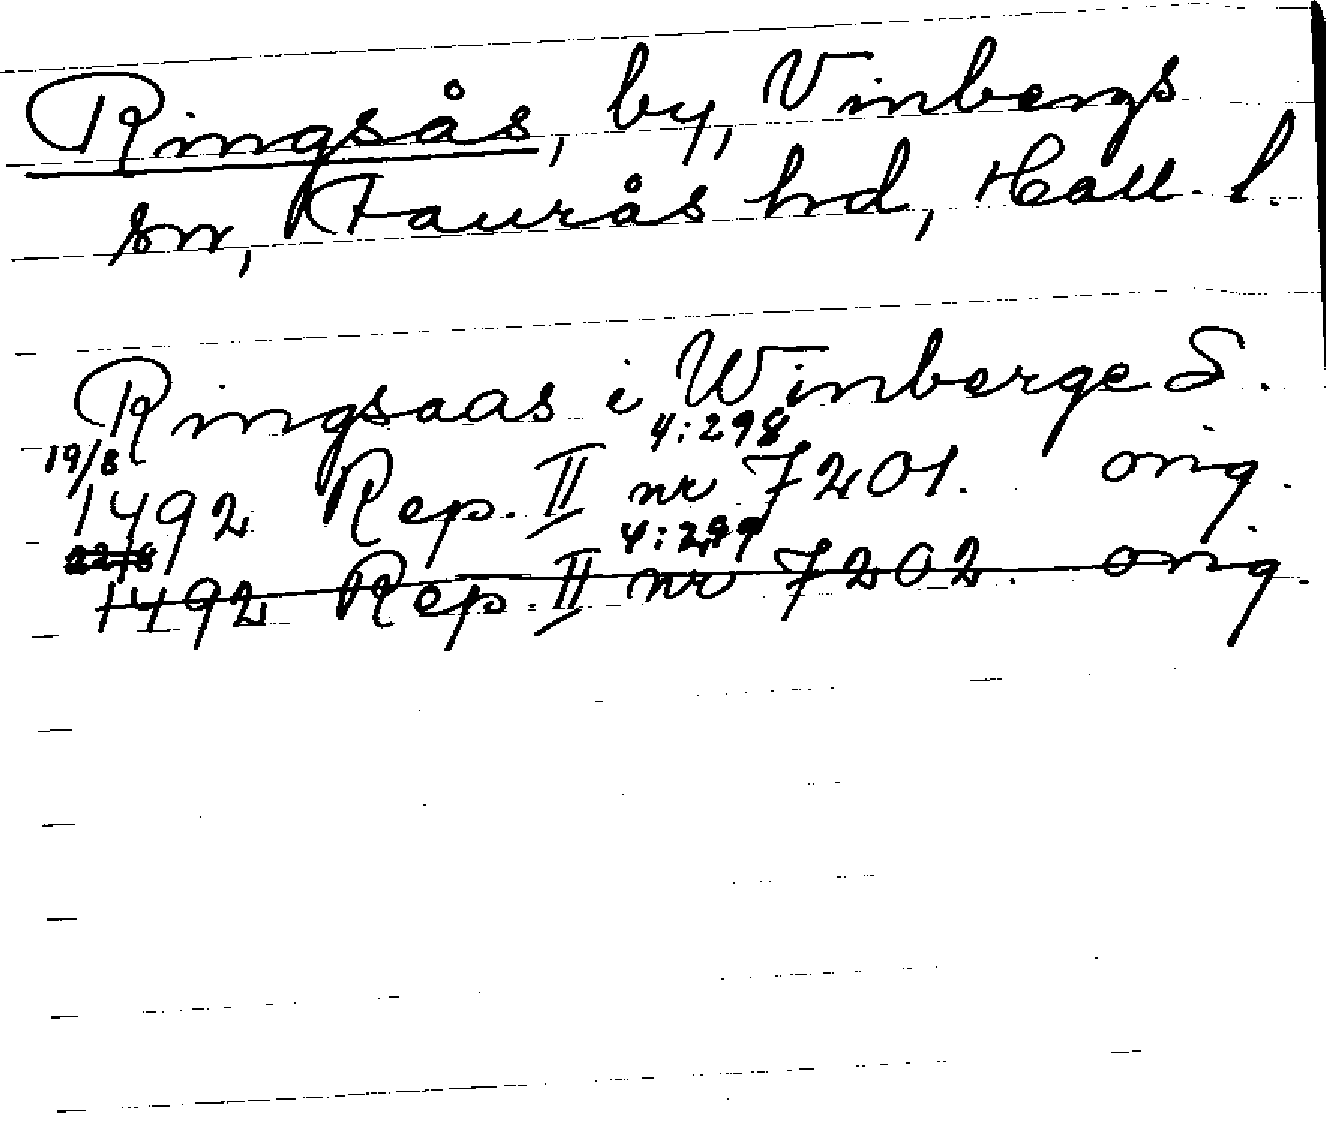 Ringsås, by, Vinbergs
sn, Faurås hd, Hall. l.
Ringsaas i Winberge S.
4:298
19/8
1492 Rep. II nr 7201. orig.
4:299
22/8
1492 Rep. II nr 7202. orig.